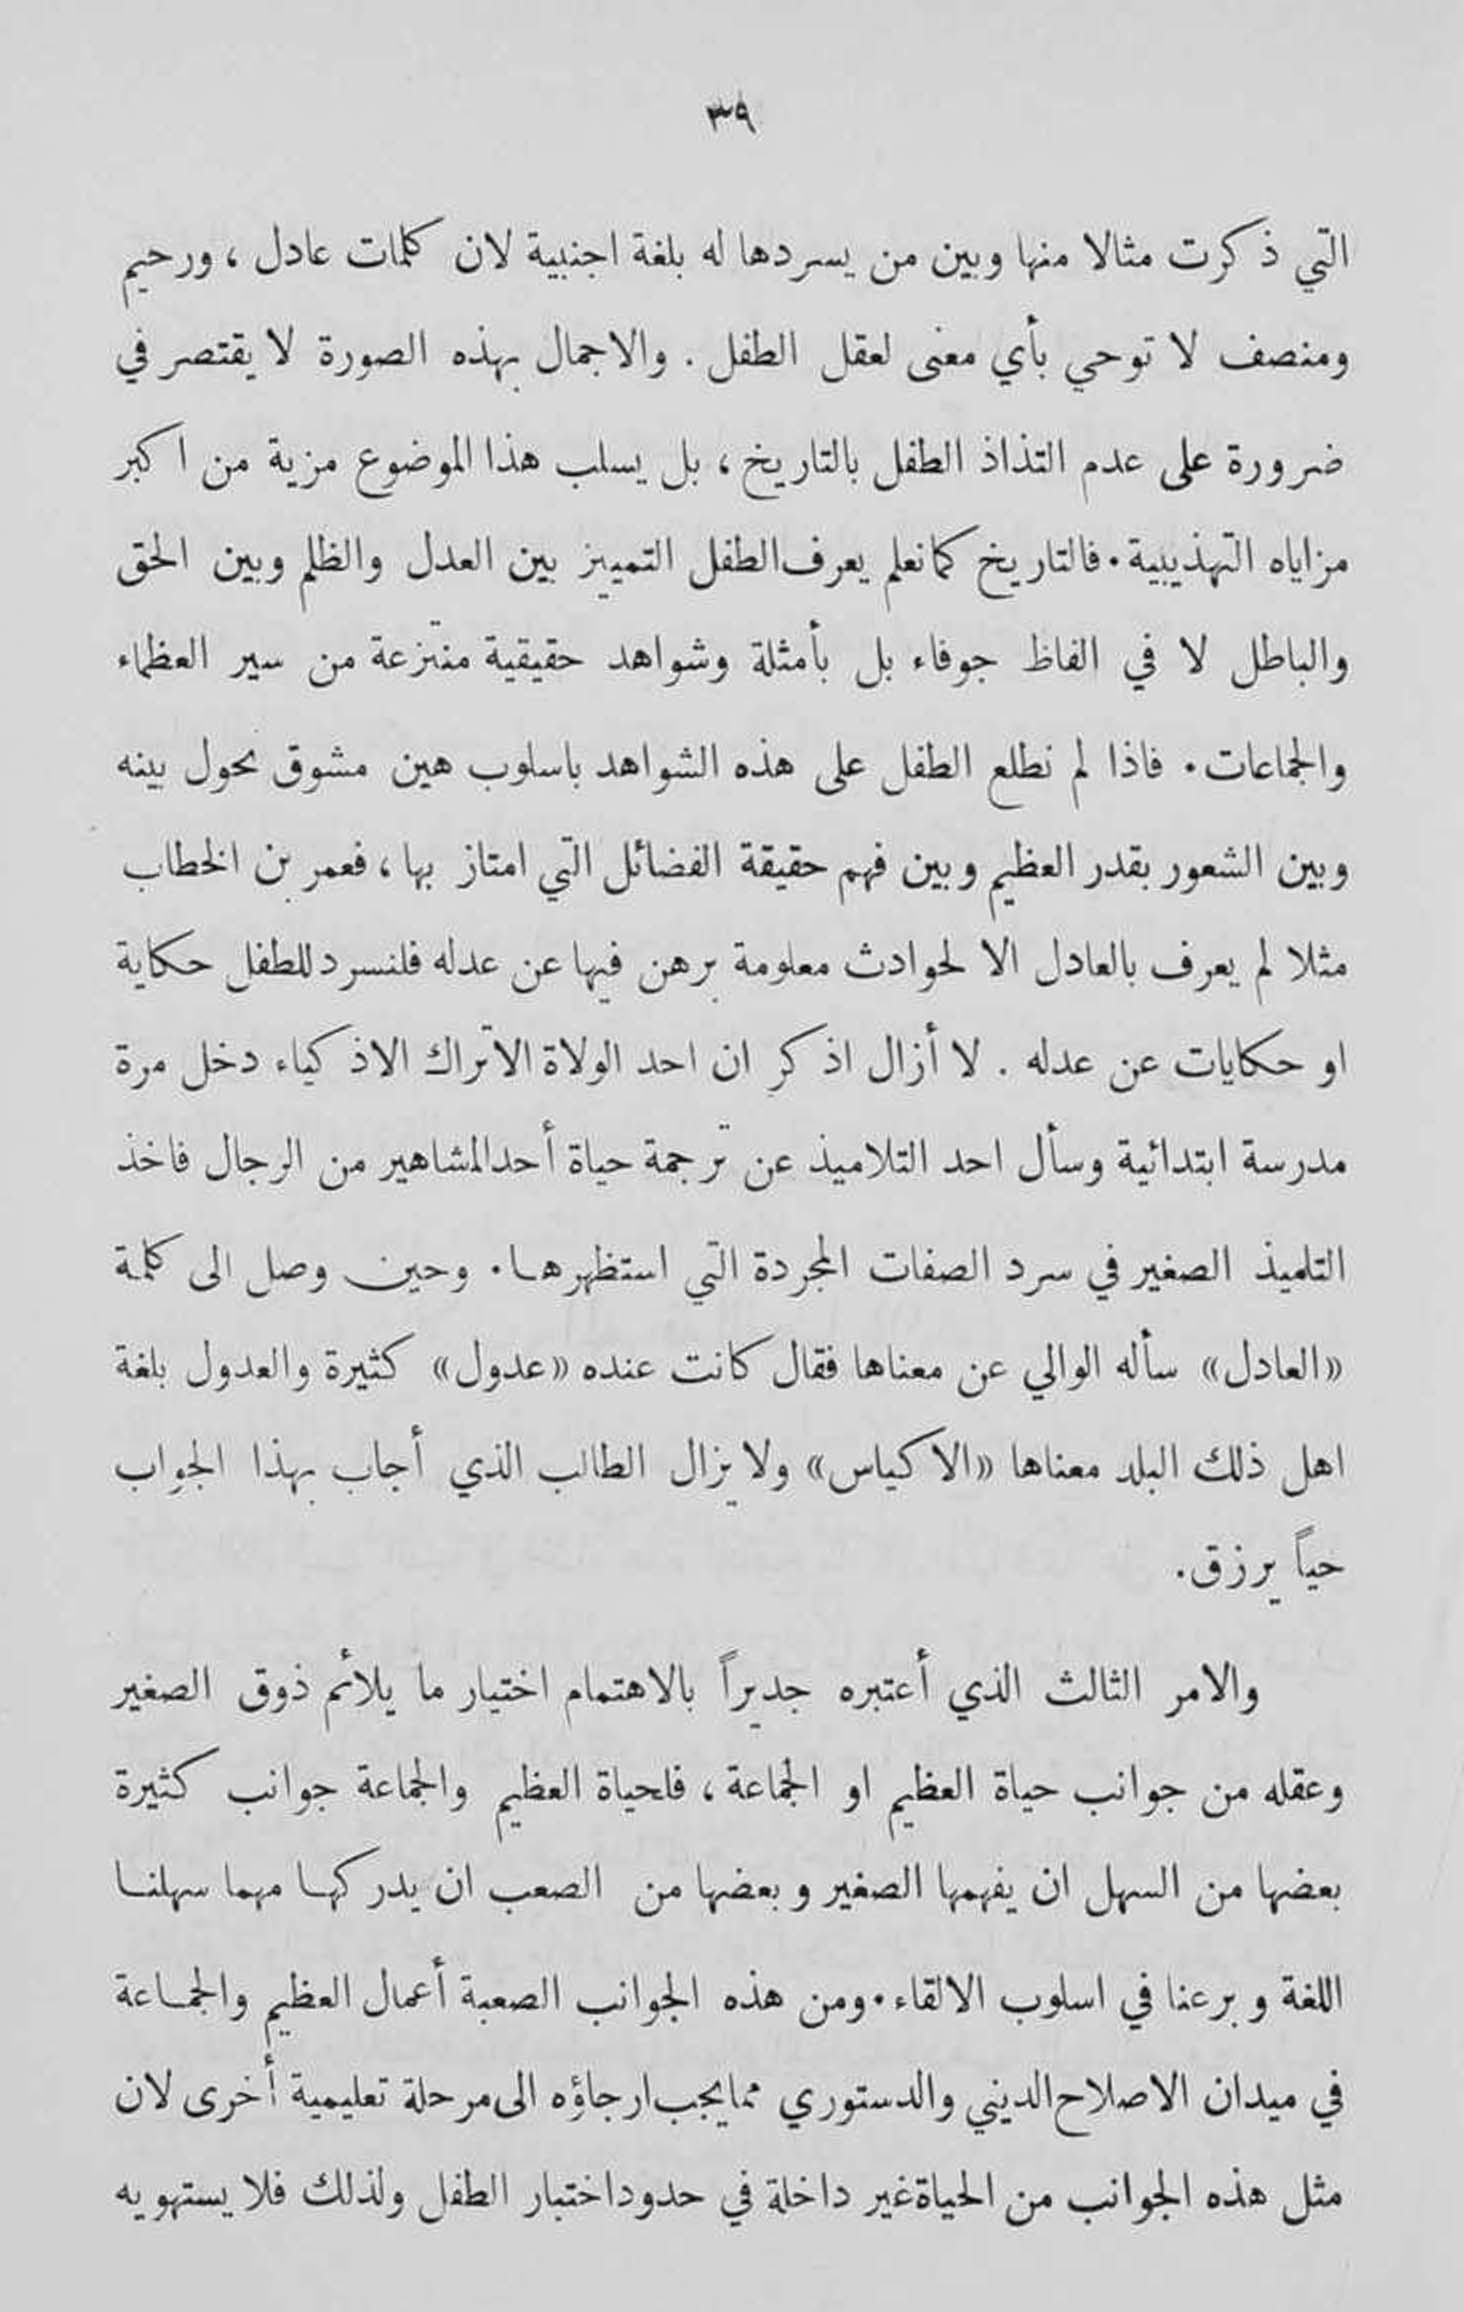 ٣٩
التي ذكرت مثالا منها وبين من يسردها له بلغة اجنبية لان كلمات عادل ، ورحيم
ومنصف لا توحي بأي معنى لعقل الطفل . والاجمال بهذه الصورة لا يقتصر في
ضرورة على عدم التذاذ الطفل بالتاريخ ، بل يسلب هذا الموضوع مزية من اكبر
مزاياه التهذيبية . فالتاريخ كما نعلم يعرف الطفل التمييز بين العدل والظلم وبين الحق
والباطل لا في الفاظ جوفاء بل بأمثلة وشواهد حقيقية منتزعة من سير العظماء
والجماعات . فاذا لم نطلع الطفل على هذه الشواهد باسلوب هين مشوق نحول بينه
وبين الشعور بقدر العظيم وبين فهم حقيقة الفضائل التي امتاز بها ، فعمر بن الخطاب
مثلا لم يعرف بالعادل الا لحوادث معلومة برهن فيها عن عدله فلنسرد للطفل حكاية
او حكايات عن عدله . لا أزال اذكر ان احد الولاة الاتراك الاذكياء دخل مرة
مدرسة ابتدائية وسأل احد التلاميذ عن ترجمة حياة أحد المشاهير من الرجال فاخذ
التلميذ الصغير في سرد الصفات المجردة التي استظهرها . وحين وصل الى كلمة
«العادل» سأله الوالي عن معناها فقال كانت عنده «عدول» كثيرة والعدول بلغة
اهل ذلك البلد معناها «الاكياس» ولا يزال الطالب الذي أجاب بهذا الجواب
حياً يرزق .
والامر الثالث الذي أعتبره جديراً بالاهتمام اختيار ما يلائم ذوق الصغير
وعقله من جوانب حياة العظيم او الجماعة ، فلحياة العظيم والجماعة جوانب كثيرة
بعضها من السهل ان يفهمها الصغير وبعضها من الصعب ان يدركها مهما سهلنا
اللغة وبرعنا في اسلوب الالقاء . ومن هذه الجوانب الصعبة أعمال العظيم والجماعة
في ميدان الاصلاح الديني والدستوري مما يجب ارجاؤه الى مرحلة تعليمية أخرى لان
مثل هذه الجوانب من الحياة غير داخلة في حدود اختبار الطفل ولذلك فلا يستهويه